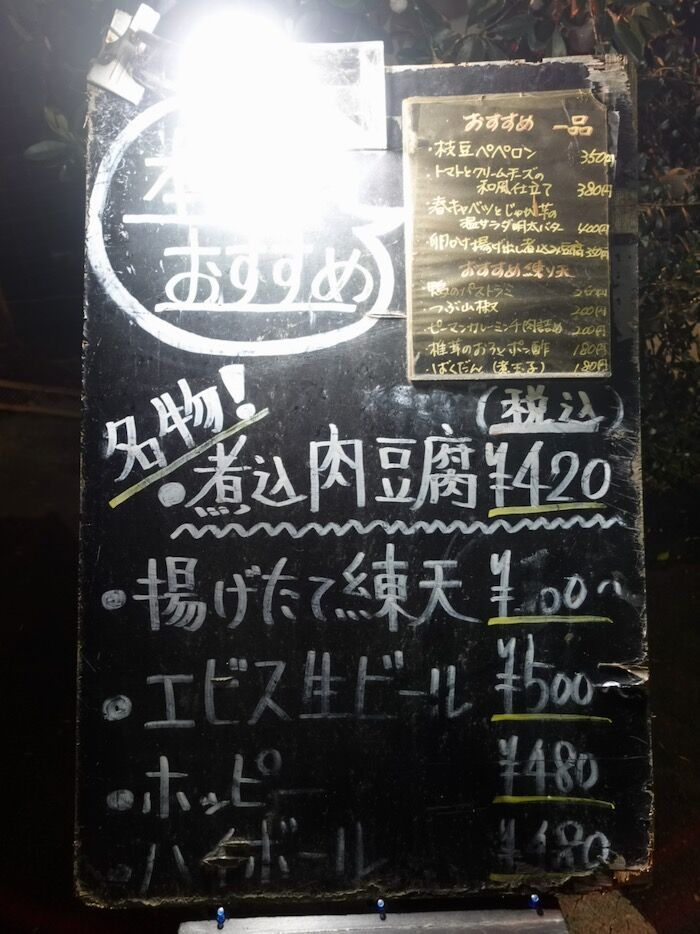 おすすめ
おすすめ 一品
・枝豆ペペロン 350円
・トマトとクリームチーズの
和風仕立て 380円
・春キャベツとじゃが芋の
温サラダ明太バター 400円
おすすめ練り天
・鴨のパストラミ 250円
・つぶ山椒 200円
・ピーマンカレーミンチ肉詰め 200円
・椎茸のおろしポン酢 180円
・ばくだん(煮玉子) 180円
名物!
(税込)
・煮込肉豆腐 ¥420
・揚げたて練天 ¥100~
・エビス生ビール ¥500~
・ホッピー ¥480
・ハイボール ¥480